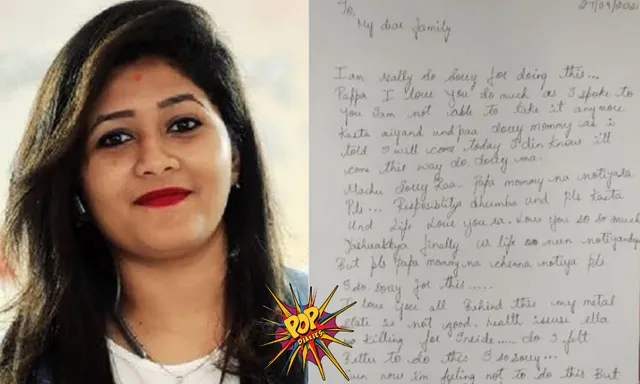 To,
27/09/202
My dear family
I am really so sorry for doing this...
Pappa I love you so much as I spoke to
you I am not able to take it anymore
Kasta aiyand und paa sorry mommy as i
told I will come today I din know i'll
come this way so sorry ma.
Machu sorry kaa. Papa mommy na notiyala
Pls... Responsiblitya dhumba und pls Kasta
Und life love you sa. Love you so so much
finally us life neen notiyandu
But pls Papa mommy na chenna notiya pls
I so sorry for this.....
I love you all Behind this my metal
state is not good. health issues ella
so killing for Inside.... so I felt
Better to do this I so sorry...
now i'm feeling not to do this But
POP
DIARIES